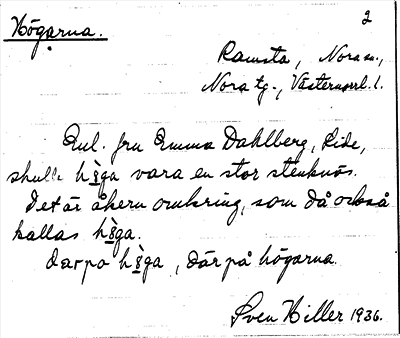 2
Högarna.
Ramsta, Nora sn.,
Nora tg., Västernorrl. l.
Enl. fru Emma Dahlberg, Lide,
skulle hö̀ga vara en stor stenknös.
Det är åkern omkring, som då också
kallas hö̀ga.
darpo hö̀ga, där på högarna
Sven Hiller 1936.